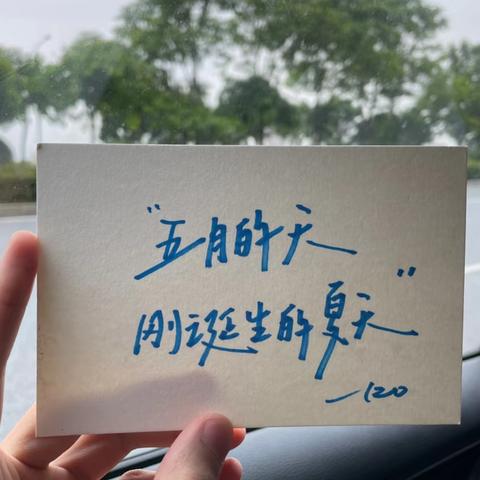 “五月的天
刚诞生的夏天”
—120